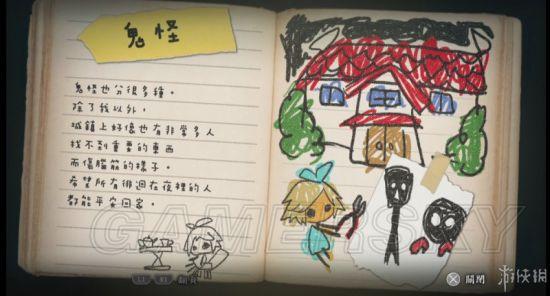 鬼怪
鬼怪也分很多種。
除了我以外，
城鎮上好像也有非常多人
找不到重要的東西
而傷腦筋的樣子。
希望所有徘徊在夜裡的人
都能平安回家。
GAMERSKY
翻頁
關閉
游侠网